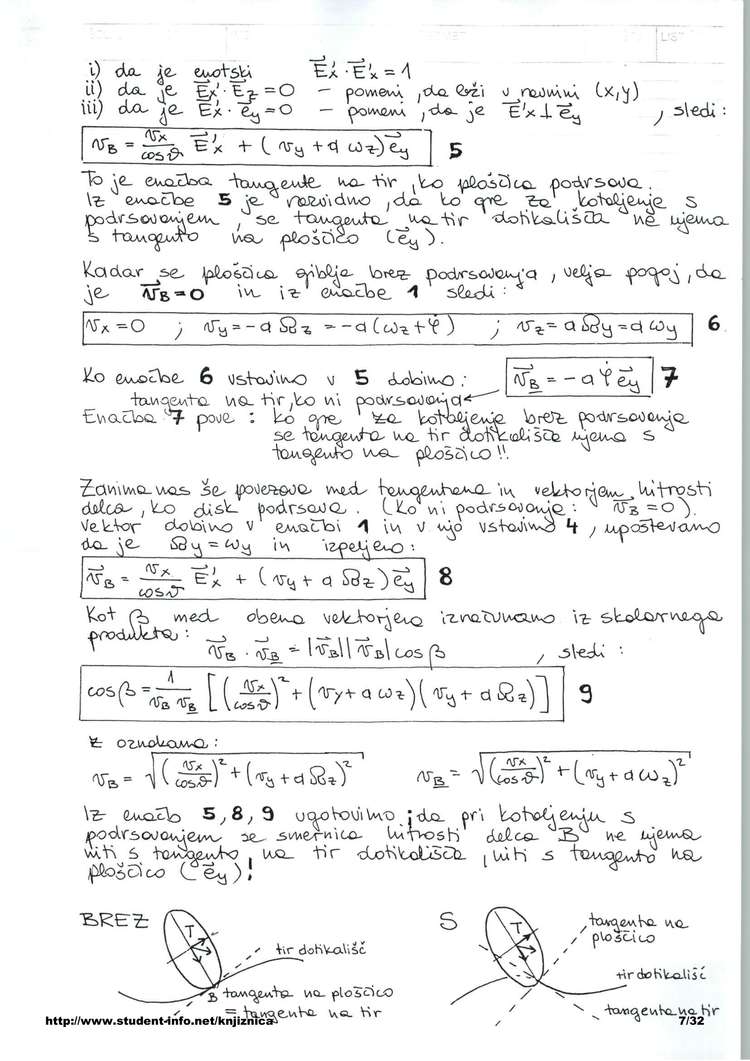 i) da je enotski E⃗'x · E⃗'x = 1
ii) da je E⃗x' · E⃗z = 0 – pomeni, da leži v ravnini (x,y)
iii) da je E⃗'x · e⃗y = 0 – pomeni, da je E⃗'x ⊥ e⃗y , sledi:
v_B = vx/cosϑ E⃗'x + (vy + a ωz) e⃗y 5
To je enačba tangente na tir, ko ploščica podrsava.
Iz enačbe 5 je razvidno, da ko gre za kotaljenje s
podrsavanjem, se tangenta na tir dotikališča ne ujema
s tangento na ploščico (e⃗y).
Kadar se ploščica giblje brez podrsavanja, velja pogoj, da
je v⃗B = 0 in iz enačbe 1 sledi:
vx = 0 ; vy = -a Ωz = -a(ωz + φ̇) ; vz = a Ωy = a ωy 6
Ko enačbe 6 vstavimo v 5 dobimo: v⃗_B = -a φ̇ e⃗y 7
tangenta na tir, ko ni podrsavanja
Enačba 7 pove: ko gre za kotaljenje brez podrsavanja
se tangenta na tir dotikališča ujema s
tangento na ploščico!!
Zanima nas še povezava med tangentama in vektorjem hitrosti
delca, ko disk podrsava. (Ko ni podrsavanja: v⃗B = 0).
Vektor dobimo v enačbi 1 in v njo vstavimo 4, upoštevamo
da je Ωy = ωy in izpeljemo:
v⃗B = vx/cosϑ E⃗'x + (vy + a Ωz) e⃗y 8
Kot β med obema vektorjema izračunamo iz skalarnega
produkta: v⃗B · v⃗_B = |v⃗B||v⃗_B| cosβ , sledi:
cosβ = 1/(vB v_B) [(vx/cosϑ)² + (vy + a ωz)(vy + a Ωz)] 9
z oznakama:
vB = √((vx/cosϑ)² + (vy + a Ωz)²) v_B = √((vx/cosϑ)² + (vy + a ωz)²)
Iz enačb 5, 8, 9 ugotovimo, da pri kotaljenju s
podrsavanjem se smernica hitrosti delca B ne ujema
niti s tangento na tir dotikališča, niti s tangento na
ploščico (e⃗y)!
BREZ
T
tir dotikališč
B tangenta na ploščico
= tangenta na tir
S
T
tangenta na
ploščico
tir dotikališč
tangenta na tir
http://www.student-info.net/knjiznica
7/32